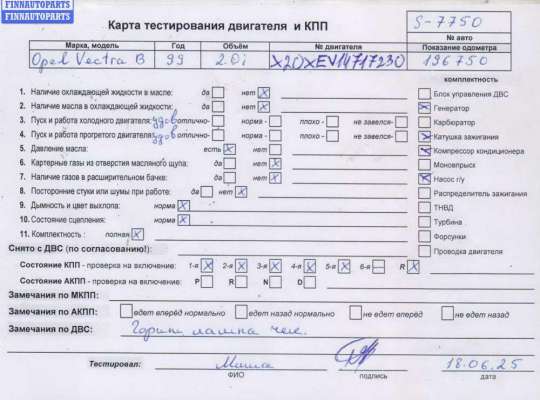 FINNAUTOPARTS
FINNAUTOPARTS
Карта тестирования двигателя и КПП
S-7750
№ авто
Марка, модель Год Объём № двигателя Показание одометра
Opel Vectra B 99 2.0i X20XEV14717230 196750
комплектность
1. Наличие охлаждающей жидкости в масле: да нет X
Блок управления ДВС
2. Наличие масла в охлаждающей жидкости: да нет X
X Генератор
3. Пуск и работа холодного двигателя: удов отлично- норма - плохо - не завелся-
Карбюратор
4. Пуск и работа прогретого двигателя: удов отлично- норма - плохо - не завелся-
X Катушка зажигания
5. Давление масла: есть X нет
X Компрессор кондиционера
6. Картерные газы из отверстия масляного щупа: да нет X
Моновпрыск
7. Наличие газов в расширительном бачке: да нет X
X Насос г/у
8. Посторонние стуки или шумы при работе: да нет X
Распределитель зажигания
9. Дымность и цвет выхлопа: норма X
ТНВД
10. Состояние сцепления: норма X
Турбина
11. Комплектность : полная X
Форсунки
Снято с ДВС (по согласованию!):
Проводка двигателя
Состояние КПП - проверка на включение: 1-я X 2-я X 3-я X 4-я X 5-я X 6-я — R X
Состояние АКПП - проверка на включение: P R N D
Замечания по МКПП:
Замечания по АКПП: едет вперёд нормально едет назад нормально не едет вперёд не едет назад
Замечания по ДВС: Горит лампа чек.
Тестировал: Миша 18.06.25
ФИО подпись дата